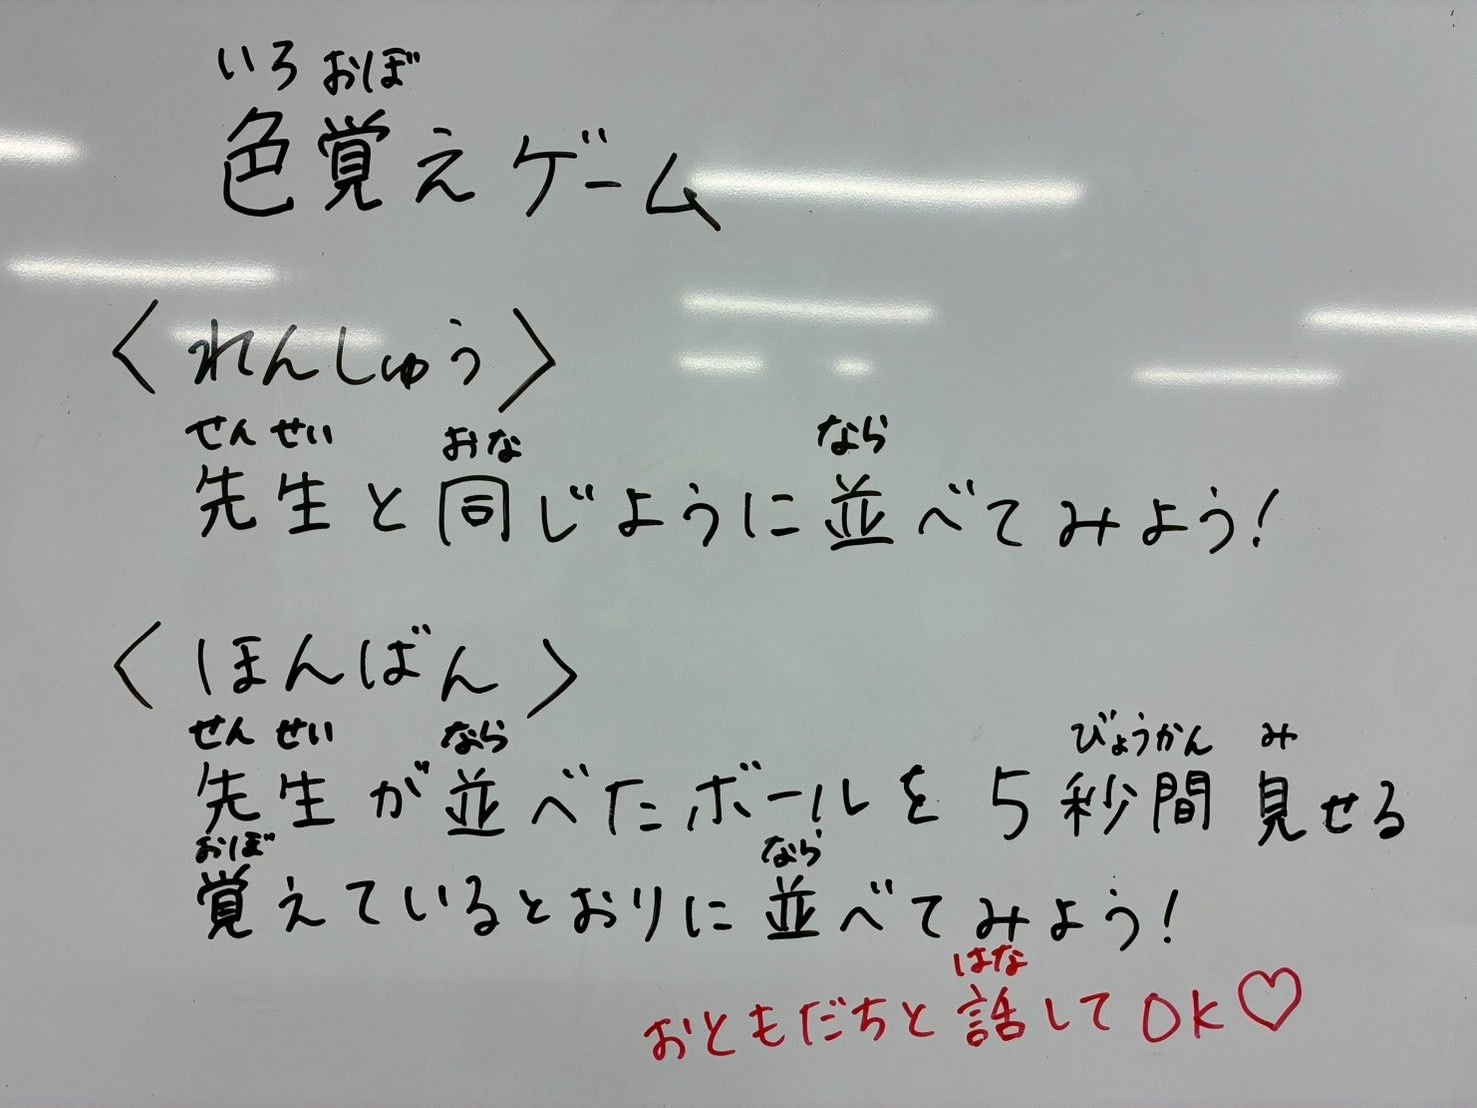 いろ おぼ
色覚えゲーム
〈れんしゅう〉
せんせい おな なら
先生と同じように並べてみよう!
〈ほんばん〉
せんせい なら びょうかん み
先生が並べたボールを5秒間見せる
おぼ なら
覚えているとおりに並べてみよう!
はな
おともだちと話してOK♡